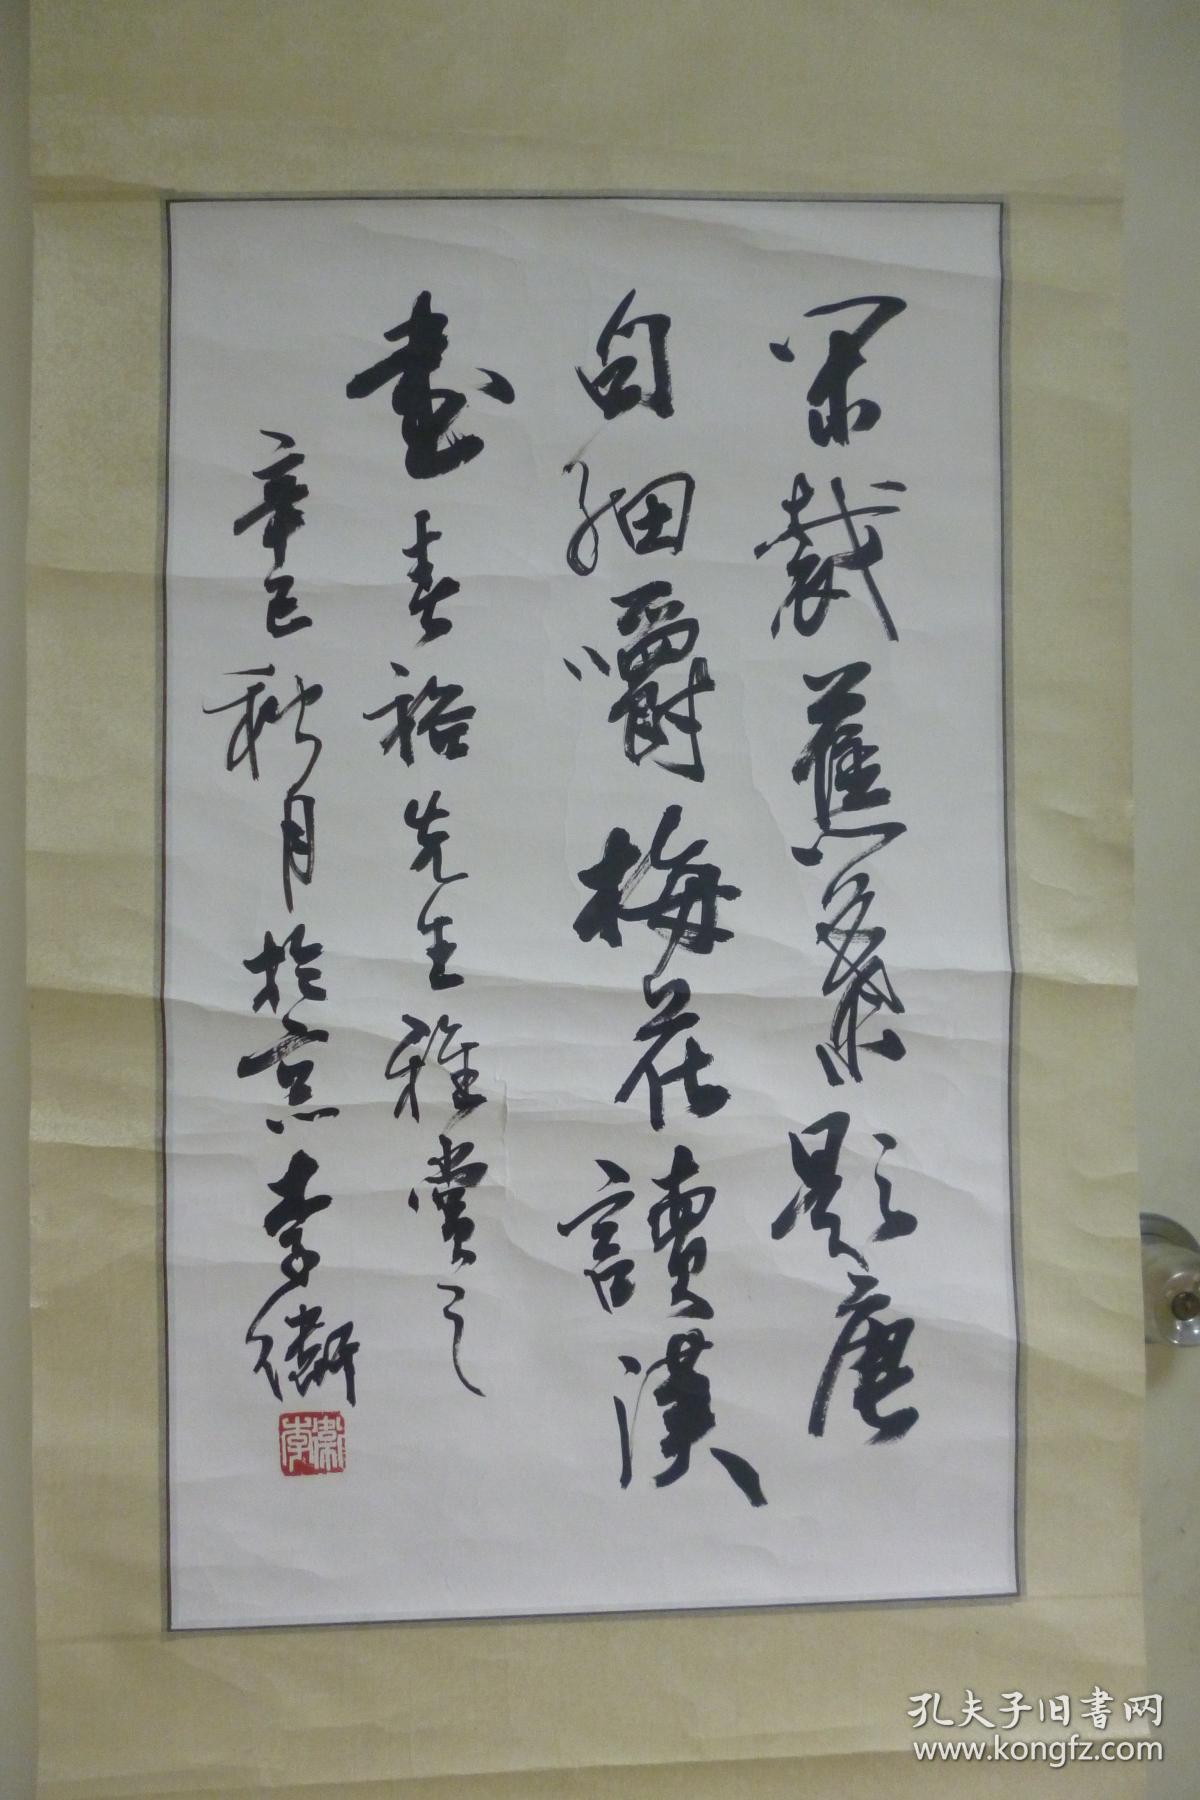 闲裁蕉葉題唐
句細嚼梅花讀漢
書春裕先生雅賞之
辛巳秋月於京李衛
李衛
孔夫子旧书网
www.kongfz.com